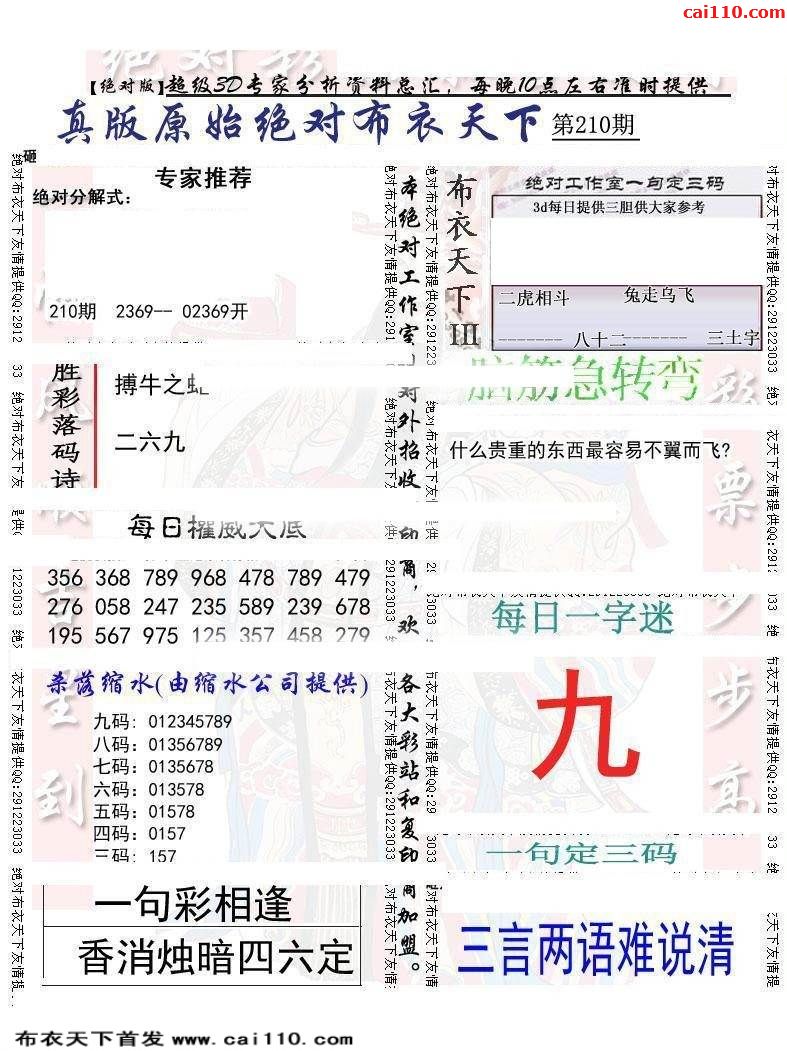 cai110.com
【绝对版】超级3D专家分析资料总汇，每晚10点左右准时提供
真版原始绝对布衣天下 第210期
专家推荐
绝对分解式：
210期 2369-- 02369开
本绝对工作室
对外招收
印
商，欢
各大彩站和复印
商加盟。
布衣天下III
绝对工作室一句定三码
3d每日提供三胆供大家参考
二虎相斗 兔走乌飞
-------- 八十二-------- 三土字
胜彩落码诗
搏牛之虻
二六九
脑筋急转弯
什么贵重的东西最容易不翼而飞?
每日权威大底
356 368 789 968 478 789 479
276 058 247 235 589 239 678
195 567 975 125 357 458 279
每日一字迷
九
杀落缩水(由缩水公司提供)
九码: 012345789
八码: 01356789
七码: 0135678
六码: 013578
五码: 01578
四码: 0157
三码: 157
一句定三码
三言两语难说清
一句彩相逢
香消烛暗四六定
绝对布衣天下友情提供QQ:291223033
彩票步步高
布衣天下首发 www.cai110.com